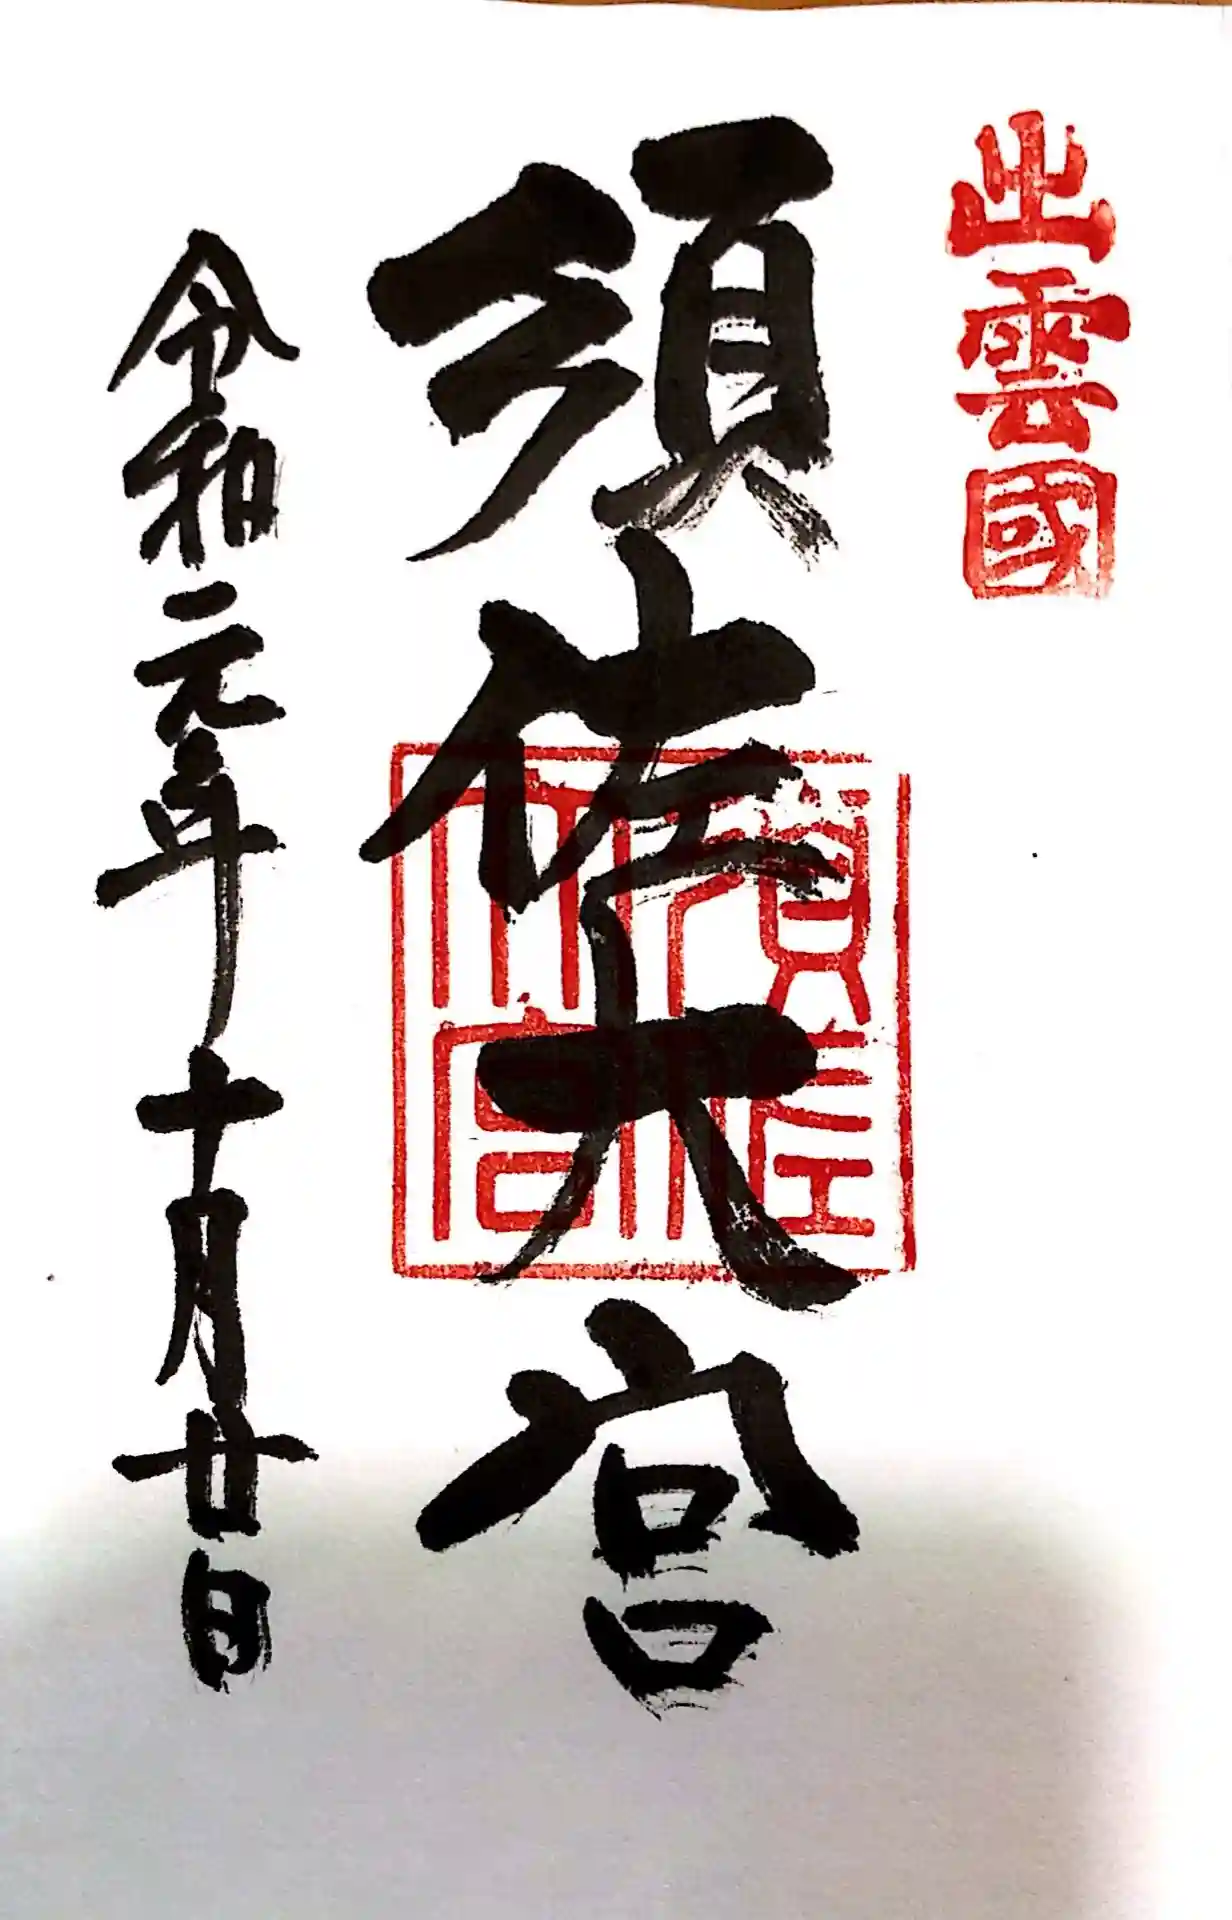 出雲國
須佐大宮
須佐大宮
令和元年十月廿日